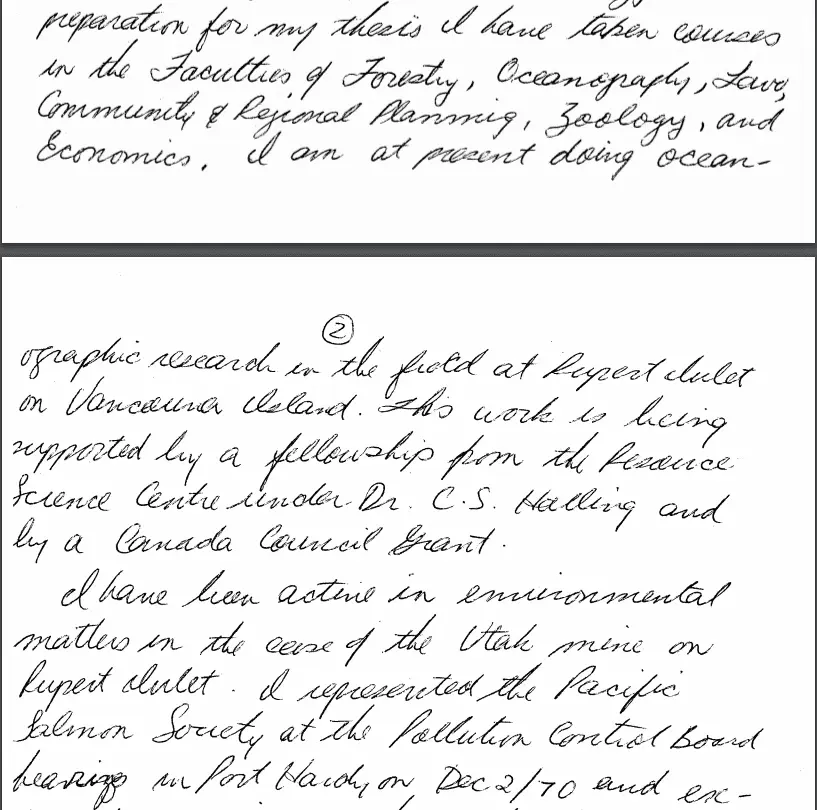 preparation for my thesis I have taken courses
in the Faculties of Forestry, Oceanography, Law,
Community & Regional Planning, Zoology, and
Economics. I am at present doing ocean-
2
ographic research in the field at Rupert Inlet
on Vancouver Island. This work is being
supported by a fellowship from the Resource
Science Centre under Dr. C.S. Holling and
by a Canada Council Grant.
I have been active in environmental
matters in the case of the Utah mine on
Rupert Inlet. I represented the Pacific
Salmon Society at the Pollution Control Board
hearings in Port Hardy on Dec 2/70 and ex-